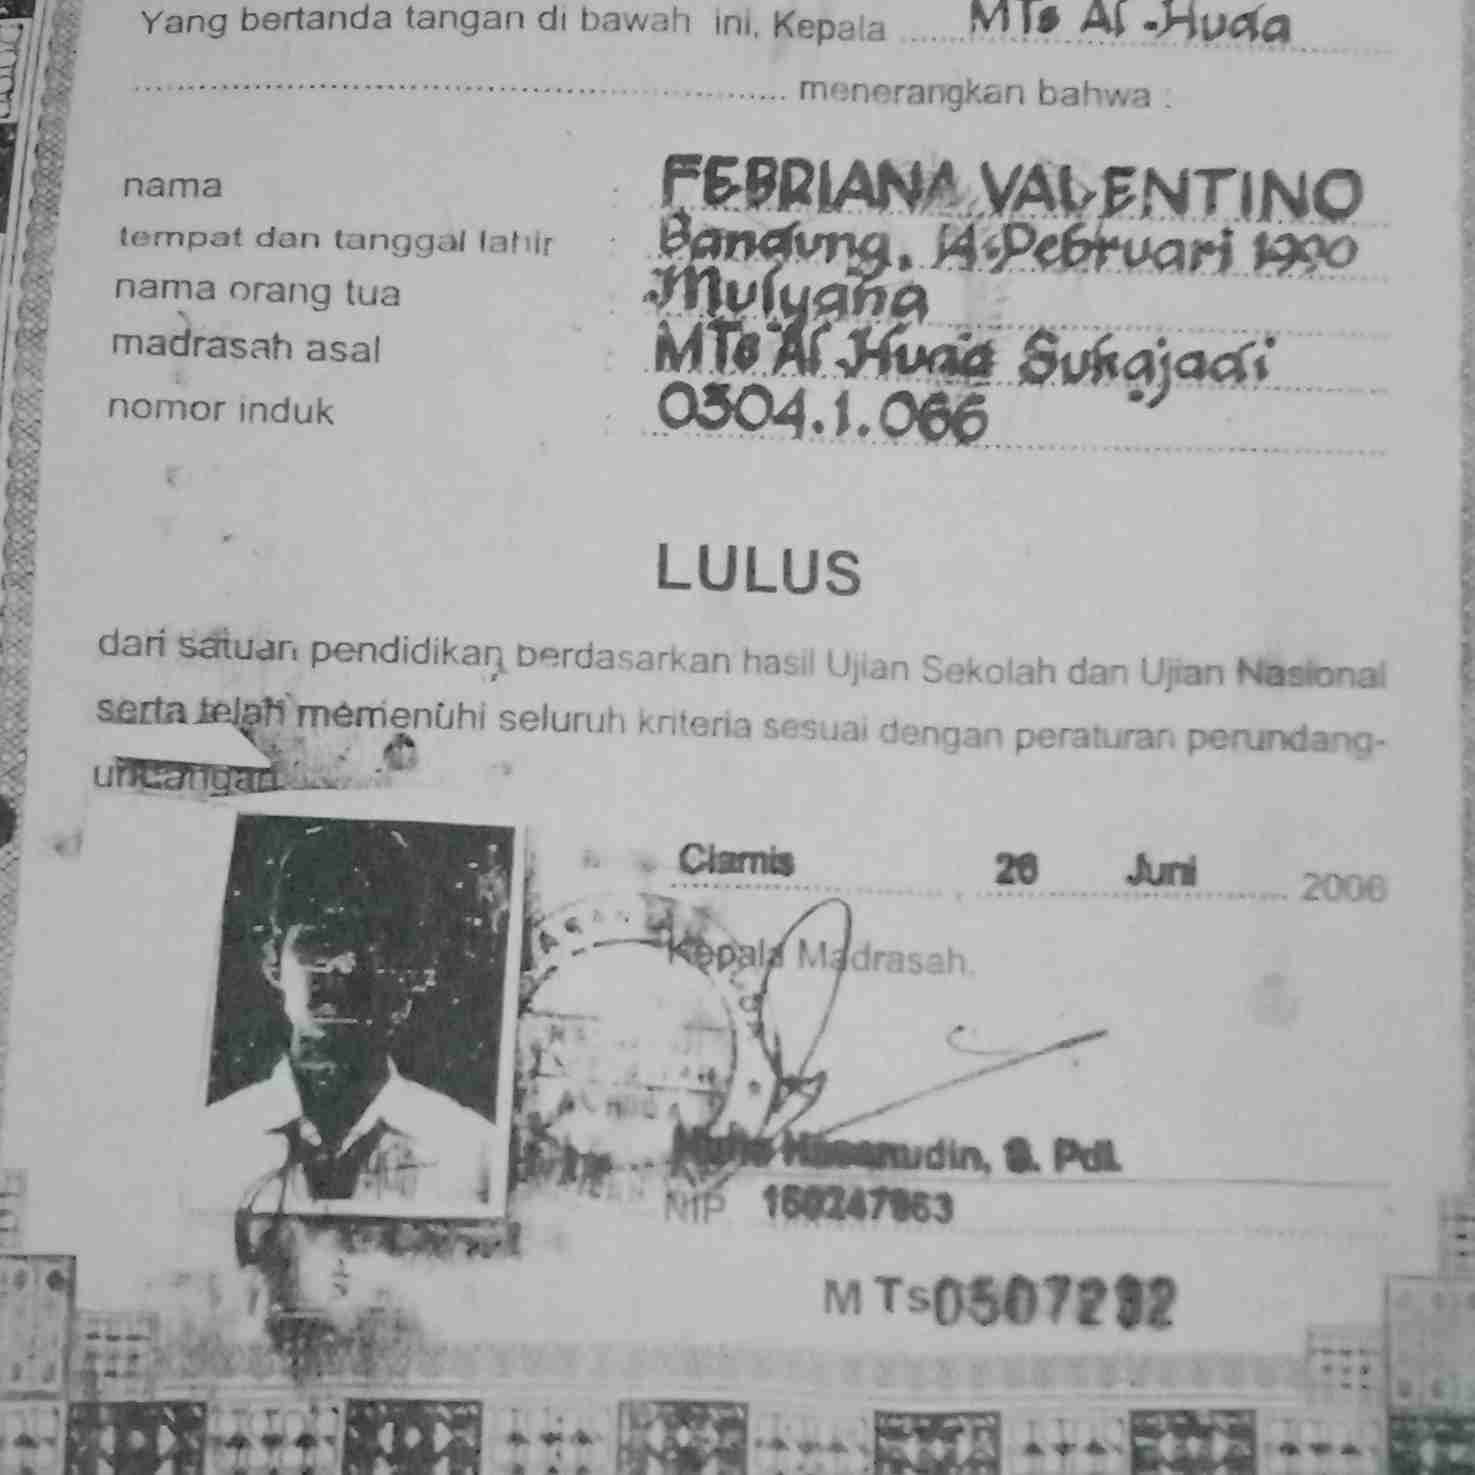 Yang bertanda tangan di bawah ini, Kepala MTs Al-Huda
menerangkan bahwa :
nama : FEBRIANA VALENTINO
tempat dan tanggal lahir : Bandung, 14 Pebruari 1990
nama orang tua : Mulyana
madrasah asal : MTs Al Huda Sukajadi
nomor induk : 0304.1.066
LULUS
dari satuan pendidikan berdasarkan hasil Ujian Sekolah dan Ujian Nasional
serta telah memenuhi seluruh kriteria sesuai dengan peraturan perundang-
undangan
Ciamis, 26 Juni 2006
Kepala Madrasah,
AL HUDA
Hasanudin, S. PdI.
NIP 150247863
MTs 0507292